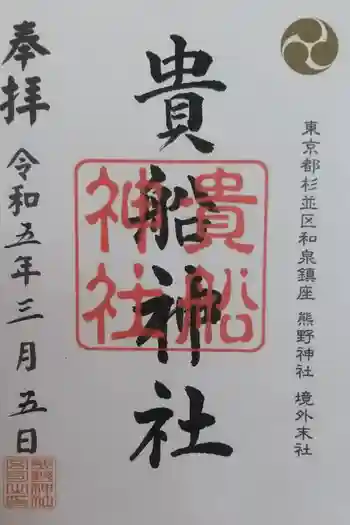 東京都杉並区和泉鎮座 熊野神社 境外末社
貴船神社
貴船
神社
奉拝 令和五年三月五日